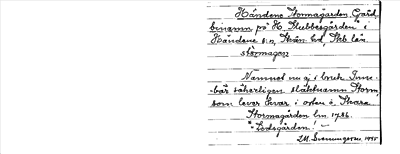 Händene Stormagården. Gård,
binamn på H. Klubbegården i
Händene sn, Skån. hd, Skb. län
stórmagon
Namnet nu ej i bruk. Inne-
bär säkerligen släktnamn Storm,
som lever kvar i orten o. Skara.
Stormagården hn. 1786.
"Ledsgården! –